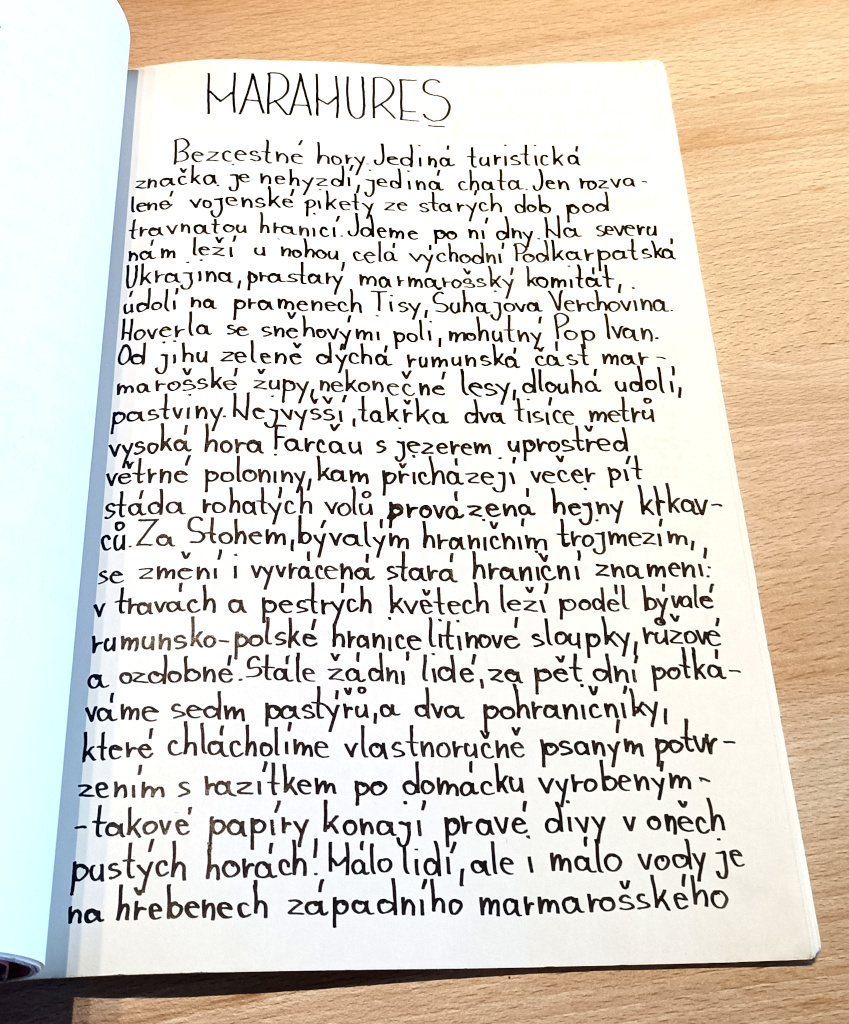 MARAMUREȘ
Bezcestné hory. Jediná turistická
značka je nehyzdí, jediná chata. Jen rozva-
lené vojenské pikety ze starých dob pod
travnatou hranicí. Jdeme po ní dny. Na severu
nám leží u nohou celá východní Podkarpatská
Ukrajina, prastarý marmarošský komitát,
údolí na pramenech Tisy, Šuhajova Verchovina.
Hoverla se sněhovými poli, mohutný Pop Ivan.
Od jihu zeleně dýchá rumunská část mar-
marošské župy, nekonečné lesy, dlouhá udolí,
pastviny. Nejvyšší, takřka dva tisíce metrů
vysoká hora Farcău s jezerem uprostřed
větrné poloniny, kam přicházejí večer pít
stáda rohatých volů provázená hejny krkav-
ců. Za Stohem, bývalým hraničním trojmezím,
se změní i vyvrácená stará hraniční znamení:
v travách a pestrých květech leží podél bývalé
rumunsko-polské hranice litinové sloupky, růžové
a ozdobné. Stále žádní lidé, za pět dní potká-
váme sedm pastýřů, a dva pohraničníky,
které chlácholíme vlastnoručně psaným potvr-
zením s razítkem po domácku vyrobeným-
-takové papíry konají pravé divy v oněch
pustých horách! Málo lidí, ale i málo vody je
na hřebenech západního marmarošského